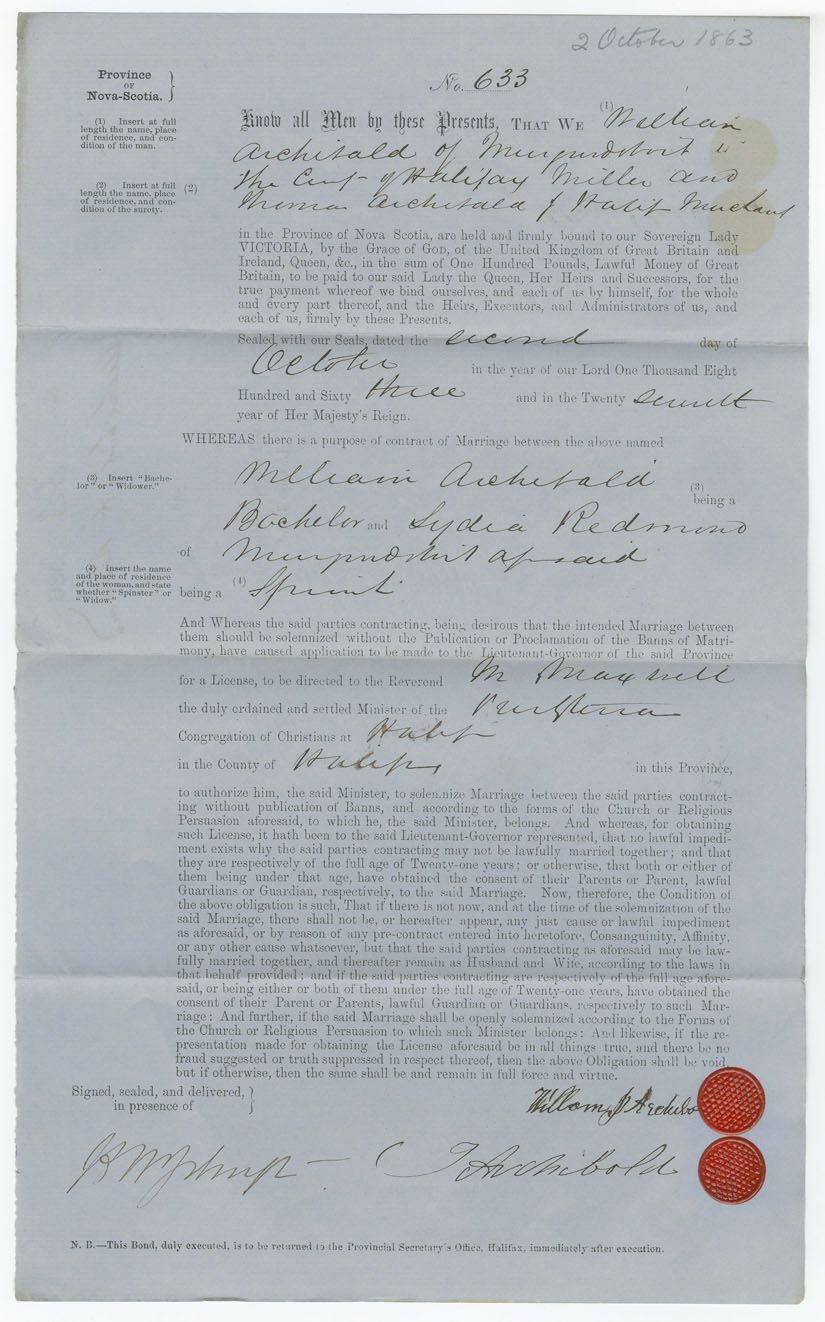 2 October 1863
Province
OF
Nova-Scotia.
No. 633
(1) Insert at full
length the name, place
of residence, and con-
dition of the man.
Know all Men by these Presents, THAT WE (1) William
Archibald of Musquodoboit in
the County of Halifax Miller and
(2) Insert at full
length the name, place
of residence, and con-
dition of the surety.
(2)
Thomas Archibald of Halifx Merchant
in the Province of Nova Scotia, are held and firmly bound to our Sovereign Lady
VICTORIA, by the Grace of GOD, of the United Kingdom of Great Britain and
Ireland, Queen, &c., in the sum of One Hundred Pounds, Lawful Money of Great
Britain, to be paid to our said Lady the Queen, Her Heirs and Successors, for the
true payment whereof we bind ourselves, and each of us by himself, for the whole
and every part thereof, and the Heirs, Executors, and Administrators of us, and
each of us, firmly by these Presents.
Sealed with our Seals, dated the second day of
October in the year of our Lord One Thousand Eight
Hundred and Sixty three and in the Twenty seventh
year of Her Majesty's Reign.
WHEREAS there is a purpose of contract of Marriage between the above named
(3) Insert "Bache-
lor" or "Widower."
William Archibald (3)
being a
Bachelor and Lydia Redmond
of Musquodoboit aforesaid
(4) Insert the name
and place of residence
of the woman, and state
whether "Spinster" or
"Widow."
being a (4) Spinst
And Whereas the said parties contracting, being desirous that the intended Marriage between
them should be solemnized without the Publication or Proclamation of the Banns of Matri-
mony, have caused application to be made to the Lieutenant-Governor of the said Province
for a License, to be directed to the Reverend M Maxwell
the duly ordained and settled Minister of the
Congregation of Christians at Halifx
in the County of Halifx, in this Province,
to authorize him, the said Minister, to solemnize Marriage between the said parties contract-
ing without publication of Banns, and according to the forms of the Church or Religious
Persuasion aforesaid, to which he, the said Minister, belongs. And whereas, for obtaining
such License, it hath been to the said Lieutenant-Governor represented, that no lawful impedi-
ment exists why the said parties contracting may not be lawfully married together; and that
they are respectively of the full age of Twenty-one years; or otherwise, that both or either of
them being under that age, have obtained the consent of their Parents or Parent, lawful
Guardians or Guardian, respectively, to the said Marriage. Now, therefore, the Condition of
the above obligation is such, That if there is not now, and at the time of the solemnization of the
said Marriage, there shall not be, or hereafter appear, any just cause or lawful impediment
as aforesaid, or by reason of any pre-contract entered into heretofore, Consanguinity, Affinity,
or any other cause whatsoever, but that the said parties contracting as aforesaid may be law-
fully married together, and thereafter remain as Husband and Wife, according to the laws in
that behalf provided; and if the said parties contracting are respectively of the full age afore-
said, or being either or both of them under the full age of Twenty-one years, have obtained the
consent of their Parent or Parents, lawful Guardian or Guardians, respectively to such Mar-
riage: And further, if the said Marriage shall be openly solemnized according to the Forms of
the Church or Religious Persuasion to which such Minister belongs: And likewise, if the re-
presentation made for obtaining the License aforesaid be in all things true, and there be no
fraud suggested or truth suppressed in respect thereof, then the above Obligation shall be void,
but if otherwise, then the same shall be and remain in full force and virtue.
Signed, sealed, and delivered,
in presence of
William J Archibo
T Archibold
N. B.—This Bond, duly executed, is to be returned to the Provincial Secretary's Office, Halifax, immediately after execution.